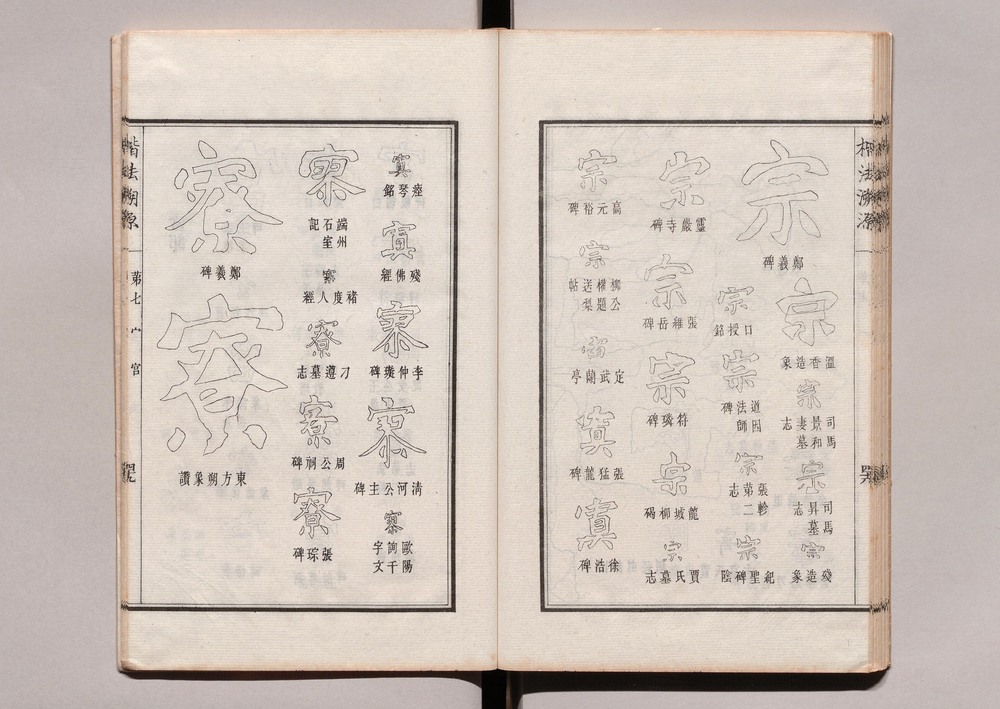 楷法溯源
宗
鄭義碑
宗
溫香造象
宗
司馬景和妻墓志
宗
司馬昇墓志
宗
殘造象
宗
口授銘
宗
道因法師碑
宗
張軫第二志
宗
紀聖碑陰
宗
靈嚴寺碑
宗
張維岳碑
宗
符璘碑
宗
龍城柳碣
宗
賈氏墓志
宗
高元裕碑
宗
柳公權題送梨帖
定武蘭亭
寘
張猛龍碑
寘
徐浩碑
寘
瘞琴銘
寘
殘佛經
寮
李仲璇碑
寮
清河公主碑
寮
歐陽詢千字文
寮
端州石室記
寮
褚度人經
寮
刁遵墓志
寮
周公祠碑
寮
張琮碑
寮
鄭義碑
寮
東方朔象讚
楷法溯源
第七
宀
宮